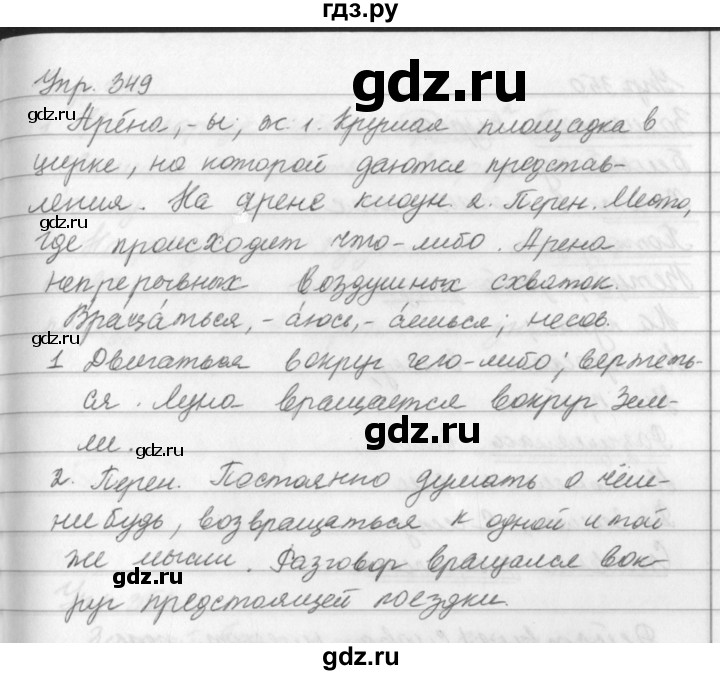 гдз.ру
Упр. 349
gdz.ru
gdz.ru
Аре́на, -ы, ж. 1. Круглая площадка в
цирке, на которой даются представ-
gdz.ru
ления. На арене клоун я. Перен. Место,
gdz.ru
где происходит что-либо. Арена
непрерывных воздушных схваток.
Враща́ться, -а́юсь, -а́ешься; несов.
gdz.ru
1 Двигаться вокруг чего-либо; вертеть-
ся. Луна вращается вокруг Зем-
gdz.ru
ли.
gdz.ru
2. Перен. Постоянно думать о чём-
нибудь, возвращаться к одной и той
же мысли. Разговор вращался вок-
gdz.ru
gdz.ru
руг предстоящей поездки.
gdz.ru